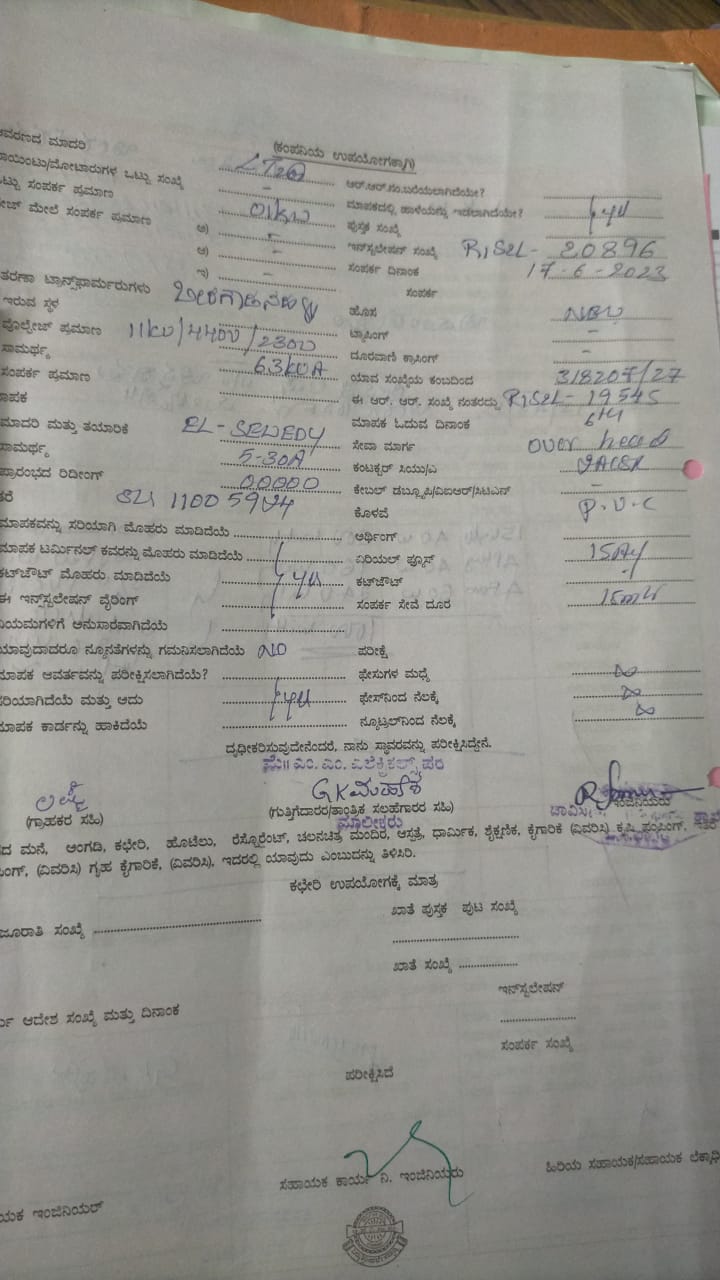 (ಕಂಪನಿಯ ಉಪಯೋಗಕ್ಕಾಗಿ)
ಆವರಣದ ಮಾದರಿ LT2a ಆರ್.ಆರ್.ಸಂ.ಬರೆಯಲಾಗಿದೆಯೇ?
ಪಾಯಿಂಟು/ಮೋಟಾರುಗಳ ಒಟ್ಟು ಸಂಖ್ಯೆ - ಮಾಪಕದಲ್ಲಿ ಹಾಳೆಯನ್ನು ಇಡಲಾಗಿದೆಯೇ?
ಒಟ್ಟು ಸಂಪರ್ಕ ಪ್ರಮಾಣ 01KW ಪುಸ್ತಕ ಸಂಖ್ಯೆ
ಮೇಲೆ ಸಂಪರ್ಕ ಪ್ರಮಾಣ ಅ) - ಇನ್‌ಸ್ಟಲೇಷನ್ ಸಂಖ್ಯೆ RJS2L- 20896
ಆ) - ಸಂಪರ್ಕ ದಿನಾಂಕ 17-6-2023
ಇ) - ಸಂಪರ್ಕ
ಟ್ರಾನ್ಸ್‌ಫಾರ್ಮರುಗಳು
ಇರುವ ಸ್ಥಳ ಹೊಸ NEW
ವೋಲ್ಟೇಜ್ ಪ್ರಮಾಣ 11KV/440V/230V ಟ್ಯಾಪಿಂಗ್ -
ಸಾಮರ್ಥ್ಯ 63KVA ದೂರವಾಣಿ ಕ್ರಾಸಿಂಗ್ -
ಸಂಪರ್ಕ ಪ್ರಮಾಣ ಯಾವ ಸಂಖ್ಯೆಯ ಕಂಬದಿಂದ 318207/27
ಮಾಪಕ ಈ ಆರ್. ಆರ್. ಸಂಖ್ಯೆ ನಂತರದ್ದು RJS2L- 19545
ಮಾದರಿ ಮತ್ತು ತಯಾರಿಕೆ EL-SEWEDY ಮಾಪಕ ಓದುವ ದಿನಾಂಕ 6th
ಸಾಮರ್ಥ್ಯ 5-30A ಸೇವಾ ಮಾರ್ಗ over head
ಪ್ರಾರಂಭದ ರಿಡೀಂಗ್ 00000 ಕಂಟಕ್ಟರ್ ಸಿಯು/ಎ
ಕೇಬಲ್ ಡಬ್ಲ್ಯೂಪಿ/ವಿಐಆರ್/ಸಿಟಿಎನ್ -
ಕೊಳವೆ P.V.C
ಮಾಪಕವನ್ನು ಸರಿಯಾಗಿ ಮೊಹರು ಮಾಡಿದೆಯೆ ಅರ್ಥಿಂಗ್
ಮಾಪಕ ಟರ್ಮಿನಲ್ ಕವರನ್ನು ಮೊಹರು ಮಾಡಿದೆಯೆ ಏರಿಯಲ್ ಫ್ಯೂಸ್
ಕಟ್‌ಔಟ್ ಮೊಹರು ಮಾಡಿದೆಯೆ ಕಟ್‌ಔಟ್
ಈ ಇನ್‌ಸ್ಟಲೇಷನ್ ವೈರಿಂಗ್ ಸಂಪರ್ಕ ಸೇವೆ ದೂರ
ನಿಯಮಗಳಿಗೆ ಅನುಸಾರವಾಗಿದೆಯೆ
ಯಾವುದಾದರೂ ನ್ಯೂನತೆಗಳನ್ನು ಗಮನಿಸಲಾಗಿದೆಯೆ NO ಪರೀಕ್ಷೆ
ಮಾಪಕ ಆವರ್ತವನ್ನು ಪರೀಕ್ಷಿಸಲಾಗಿದೆಯೆ? ಫೇಸುಗಳ ಮಧ್ಯೆ ∞
ಸರಿಯಾಗಿದೆಯೆ ಮತ್ತು ಅದು ಫೇಸ್‌ನಿಂದ ನೆಲಕ್ಕೆ ∞
ಮಾಪಕ ಕಾರ್ಡನ್ನು ಹಾಕಿದೆಯೆ ನ್ಯೂಟ್ರಲ್‌ನಿಂದ ನೆಲಕ್ಕೆ ∞
ದೃಢೀಕರಿಸುವುದೇನೆಂದರೆ, ನಾನು ಸ್ಥಾವರವನ್ನು ಪರೀಕ್ಷಿಸಿದ್ದೇನೆ.
ಮೆ॥ ಎಂ. ಎಂ. ಎಲೆಕ್ಟ್ರಿಕಲ್ಸ್ ಪರ
(ಗ್ರಾಹಕರ ಸಹಿ) (ಗುತ್ತಿಗೆದಾರರ/ತಾಂತ್ರಿಕ ಸಲಹೆಗಾರರ ಸಹಿ) ಇಂಜಿನಿಯರು
ಮಾಲೀಕರು
ಮನೆ, ಅಂಗಡಿ, ಕಛೇರಿ, ಹೊಟೇಲು, ರೆಸ್ಟೊರೆಂಟ್, ಚಲನಚಿತ್ರ ಮಂದಿರ, ಆಸ್ಪತ್ರೆ, ಧಾರ್ಮಿಕ, ಶೈಕ್ಷಣಿಕ, ಕೈಗಾರಿಕೆ (ವಿವರಿಸಿ) ಕೃಷಿ ಪಂಪಿಂಗ್, ಇತರೆ
(ವಿವರಿಸಿ) ಗೃಹ ಕೈಗಾರಿಕೆ, (ವಿವರಿಸಿ), ಇದರಲ್ಲಿ ಯಾವುದು ಎಂಬುದನ್ನು ತಿಳಿಸಿರಿ.
ಕಛೇರಿ ಉಪಯೋಗಕ್ಕೆ ಮಾತ್ರ
ಖಾತೆ ಪುಸ್ತಕ ಪುಟ ಸಂಖ್ಯೆ
ಜೂರಾತಿ ಸಂಖ್ಯೆ
ಖಾತೆ ಸಂಖ್ಯೆ
ಇನ್‌ಸ್ಟಲೇಷನ್
ಆದೇಶ ಸಂಖ್ಯೆ ಮತ್ತು ದಿನಾಂಕ
ಸಂಪರ್ಕ ಸಂಖ್ಯೆ
ಪರೀಕ್ಷಿಸಿದೆ
ಸಹಾಯಕ ಕಾರ್ಯ ನಿ. ಇಂಜಿನಿಯರು ಹಿರಿಯ ಸಹಾಯಕ/ಸಹಾಯಕ
ಇಂಜಿನಿಯರ್